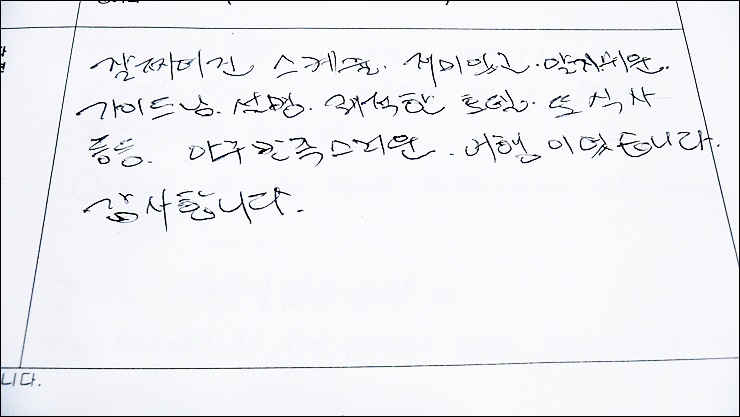 잘짜여진 스케쥴. 재미있고. 알기쉬운.
가이드님. 설명. 쾌적한 호텔. 또 식사
등등. 아주 만족스러운. 여행이였습니다.
감사합니다.
니다.